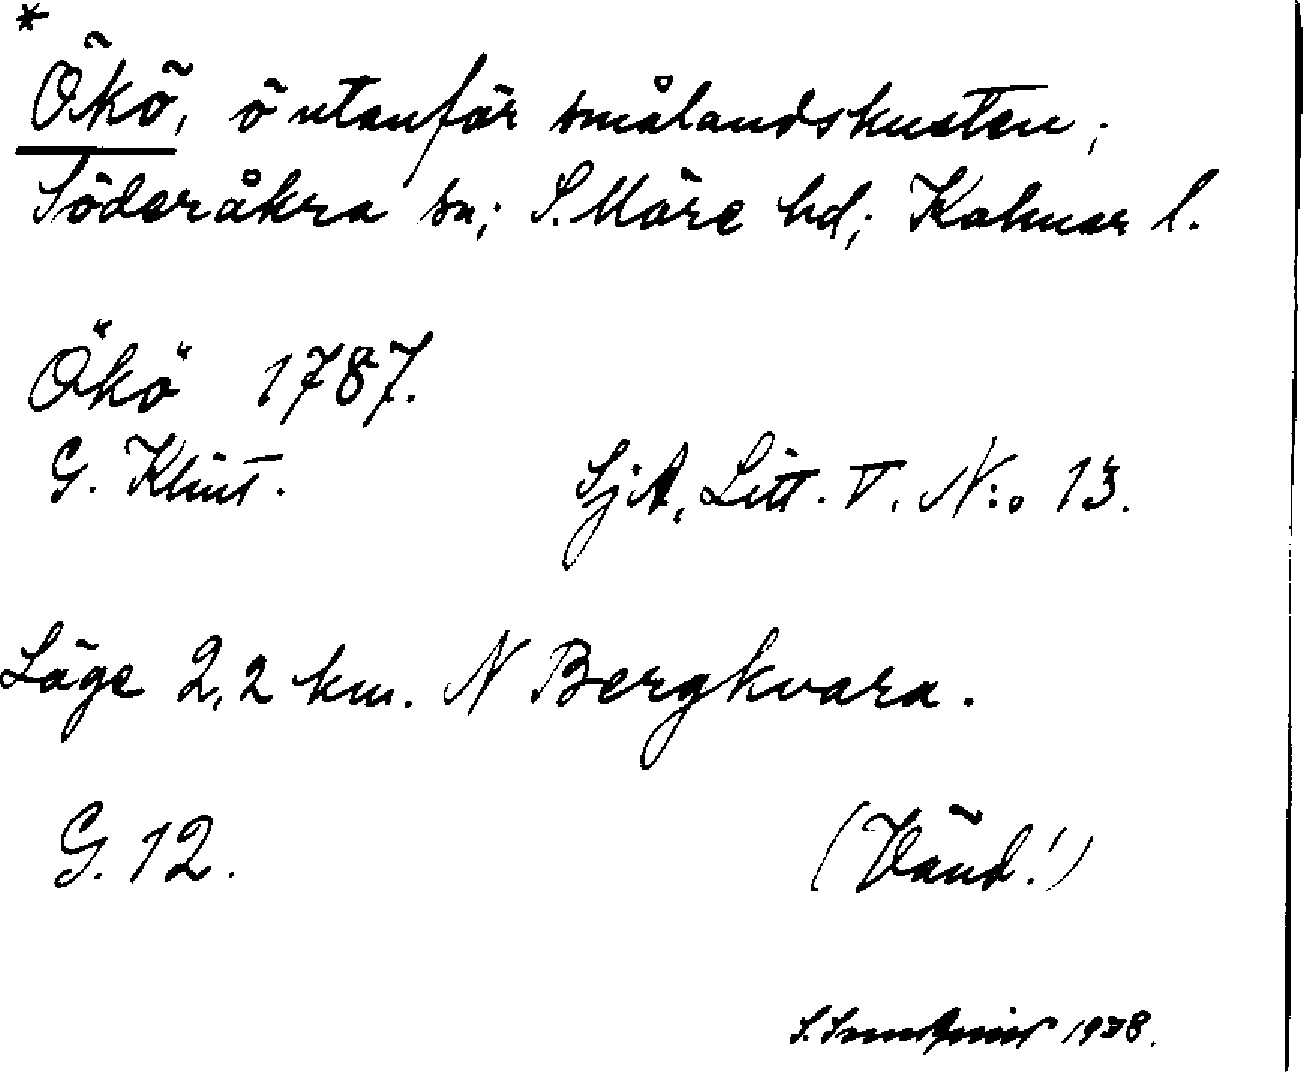 *
Ökö, ö utanför smålandskusten;
Söderåkra sn; S. Möre hd; Kalmar l.
Ökö 1787.
G. Klint. SjA, Litt. V. N:o 13.
Läge 2,2 km. N Bergkvara.
G. 12. (Vänd!)
S. 1938.